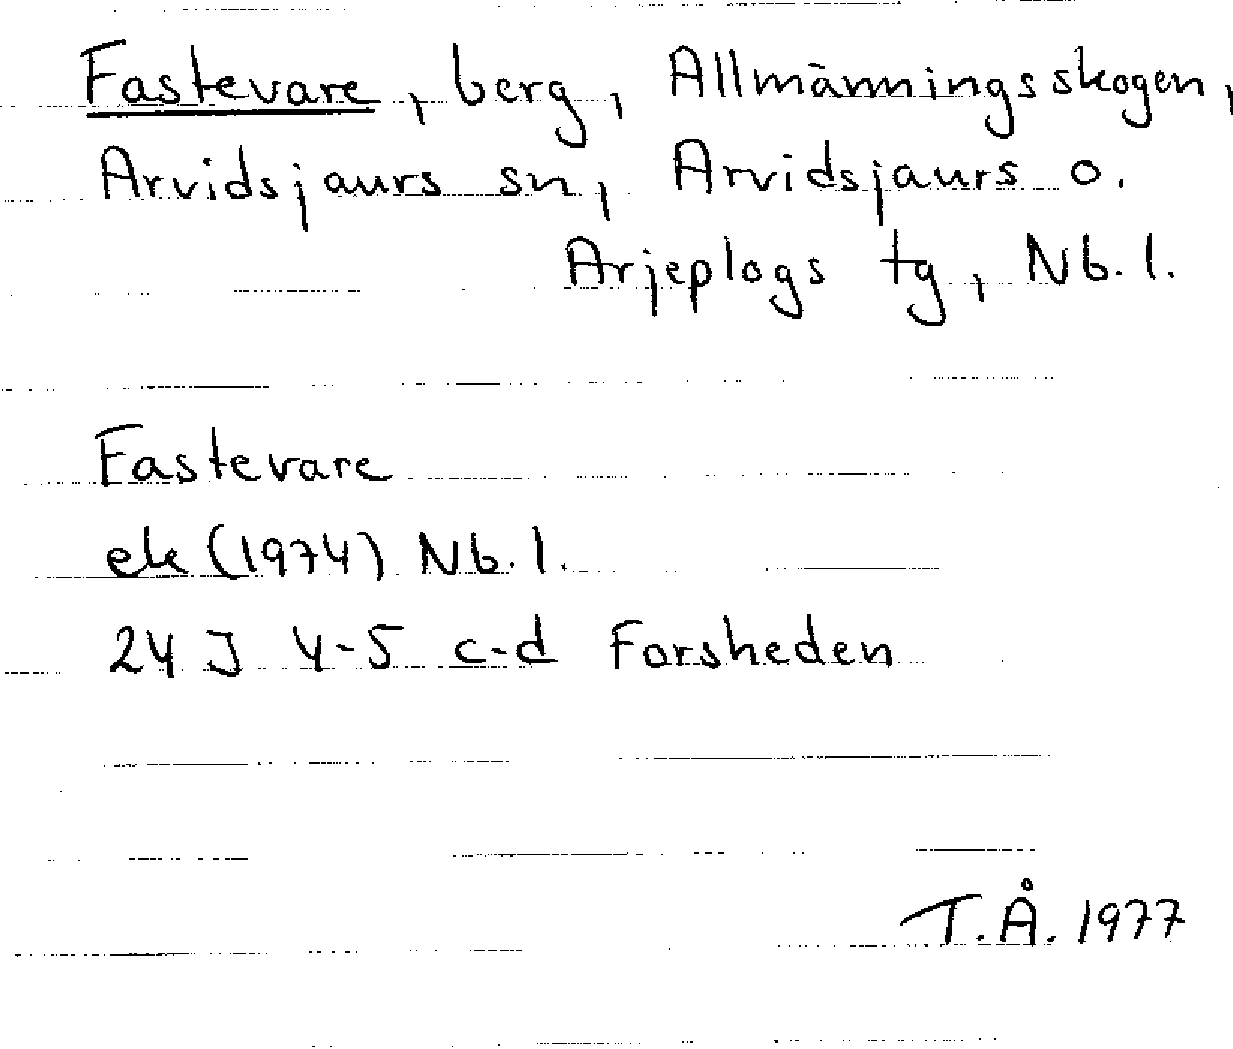 Fastevare, berg, Allmänningsskogen,
Arvidsjaurs sn, Arvidsjaurs o.
Arjeplogs tg, Nb. l.
Fastevare
ek (1974) Nb. l.
24 J 4-5 c-d Forsheden
T.Å. 1977